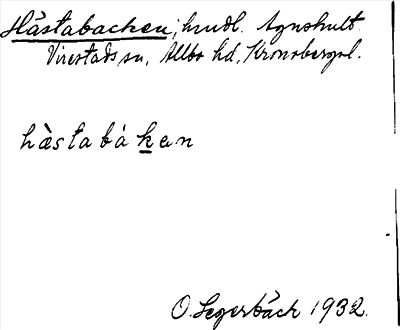 Hästabacken, hmdl. Agnshult
Virestads sn, Allbo hd, Kronobergs l.
hàstabákan
O. Segerbäck 1932.